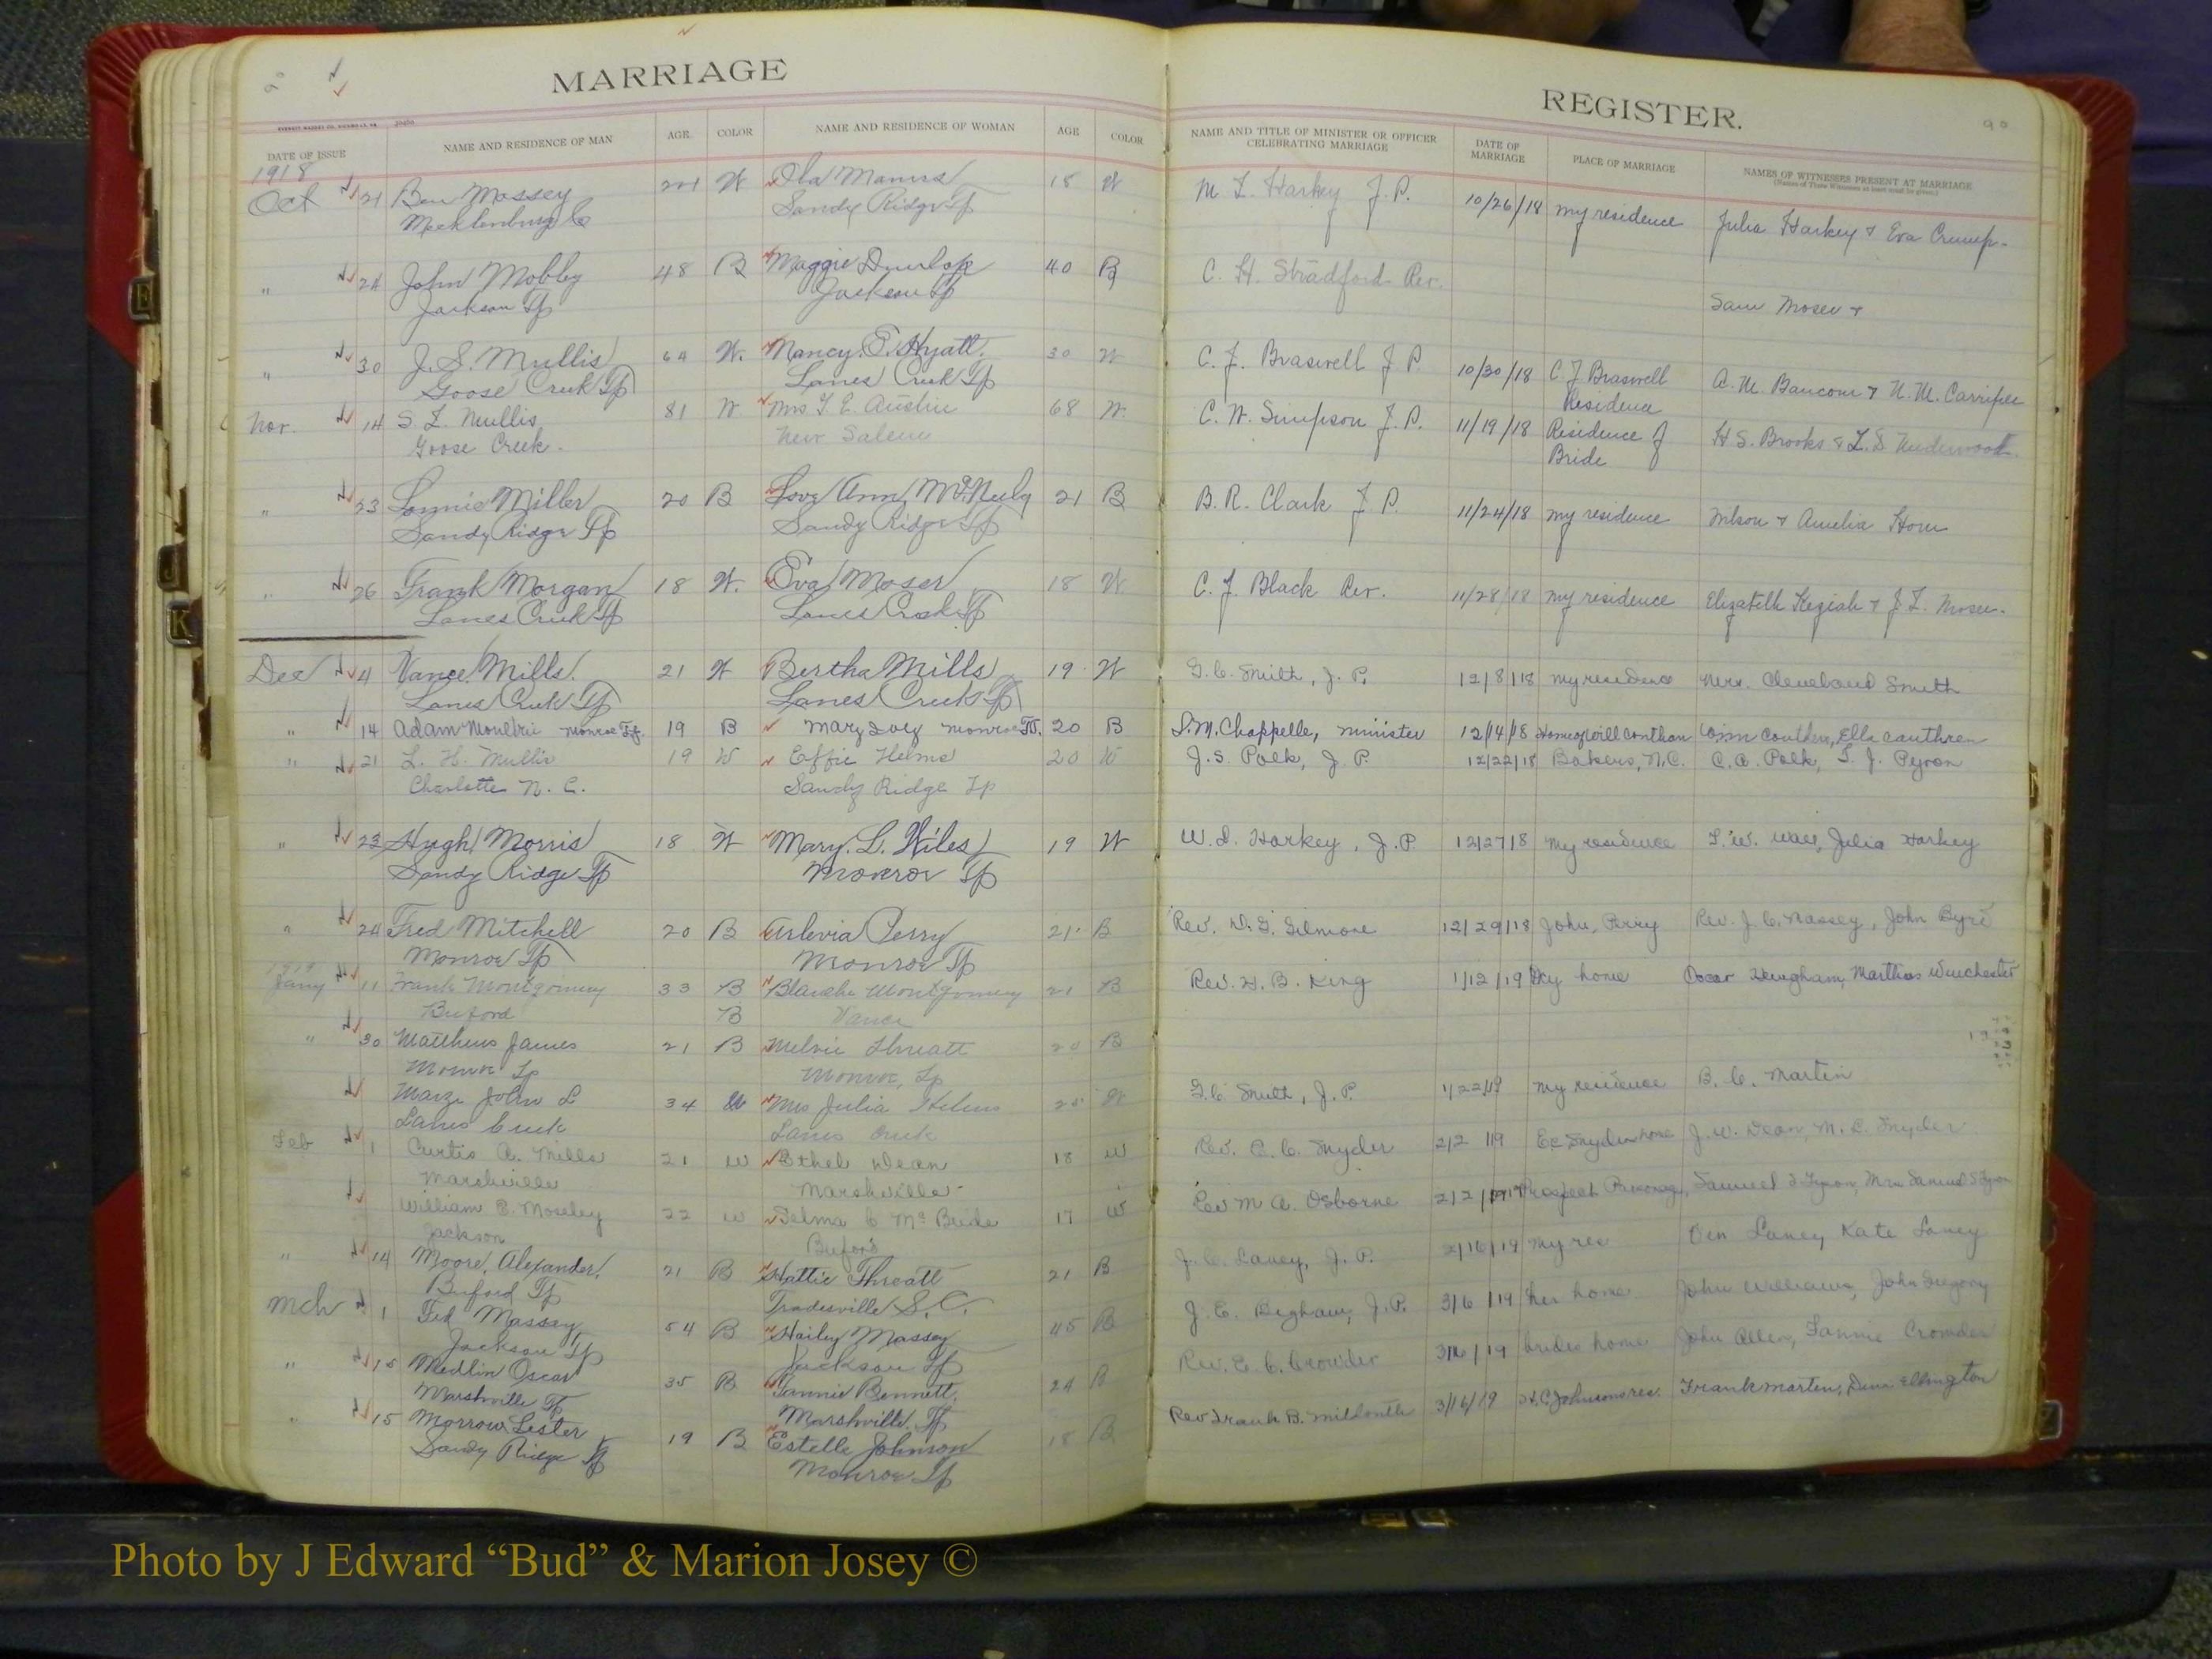 MARRIAGE
REGISTER.
DATE OF ISSUE
NAME AND RESIDENCE OF MAN
AGE
COLOR
NAME AND RESIDENCE OF WOMAN
AGE
COLOR
NAME AND TITLE OF MINISTER OR OFFICER CELEBRATING MARRIAGE
DATE OF MARRIAGE
PLACE OF MARRIAGE
NAMES OF WITNESSES PRESENT AT MARRIAGE
90
1918
Oct 21 Ben Massey W Ola 18 W M. L. Harkey J. P. 10/26/18 my residence Julia Harkey & Eva Crump.
Mecklenburg Co Sandy Ridge Tp
" 24 John Mobley 48 B Maggie Dunlap 40 B C. H. Stradford Rev.
Jackson Tp Jackson Tp Sam Moser &
" 30 J. S. Mullis 64 W. Nancy. E. Hyatt. 30 W C. J. Braswell J. P. 10/30/18 C. J Braswell A. M. Baucom & N. M. Carriker
Goose Creek Tp Lanes Creek Tp Residence
Nov. 14 S. L. Mullis 81 W Mrs T. E. Austin 68 W. C. W. Simpson J. P. 11/19/18 Residence of H S. Brooks & L. S Underwood
Goose Creek. New Salem Bride
" 23 Lonnie Miller 20 B Love Ann McNeely 21 B B. R. Clark J. P. 11/24/18 my residence Wilson & Amelia Horn
Sandy Ridge Tp Sandy Ridge Tp
" 26 Frank Morgan 18 W. Eva Moser 18 W. C. J. Black Rev. 11/28/18 my residence Elizabeth Keziah & J. L. Moser.
Lanes Creek Tp Lanes Creek Tp
Dec 4 Vance Mills. 21 W Bertha Mills 19 W G. C. Smith, J. P. 12/8/18 my residence Mrs. Cleveland Smith
Lanes Creek Tp Lanes Creek Tp
" 14 Adam Moultrie Monroe Tp. 19 B Mary Monroe Tp. 20 B S. M. Chappelle, minister 12/14/18 Home of Will Ella Cauthren
" 21 L. H. Mullis 19 W Effie Helms 20 W J. S. Polk, J. P. 12/22/18 Bakers, N.C. C. A. Polk, T. J. Pyron
Charlotte N. C. Sandy Ridge Tp
" 23 Hugh Morris 18 W Mary. L. Hiles 19 W W. L. Harkey, J. P 12/27/18 my residence L. W. Wall, Julia Harkey
Sandy Ridge Tp Monroe Tp
" 24 Fred Mitchell 20 B Arlevia Perry 21 B Rev. D. G. Gilmore 12/29/18 John, Perry Rev. J. C. Massey, John Byre
Monroe Tp Monroe Tp
1919
Jany 11 Frank Montgomery 33 B Blanche Montgomery 21 B Rev. H. B. King 1/12/19 My home Oscar Martha Winchester
Buford B Vance
" 30 Matthews James 21 B Melvie Threatt 20 B
Monroe Tp Monroe, Tp
John L 34 W Mrs Julia Helms W G. C. Smith, J. P. 1/22/19 my residence B. C. Martin
Lanes Creek Lanes Creek
Feb 1 Curtis A. Mills 21 W Ethel Dean 18 W Rev. E. C. Snyder 2/2/19 E C Snyder home J. W. Dean, M. L. Snyder
Marshville Marshville
William B. Moseley 22 W Selma C McBride 17 W Rev M A. Osborne 2/2/1919 Prospect Parsonage,
Jackson Buford
" 14 Moore, Alexander, 21 B Hattie Threatt 21 B J. C. Laney, J. P. 2/16/19 my res Ben Laney Kate Laney
Buford Tp Tradesville S. C.
Mch 1 Massey 54 B Hailey Massey 45 B J. E. Bigham, J. P. 3/6/19 her home John Williams, John Gregory
Jackson Tp Jackson Tp
" 15 Medlin Oscar 35 B Fannie Bennett, 24 B Rev. E. C. Crowder 3/16/19 brides home John Allen, Fannie Crowder
Marshville Tp Marshville Tp
" 15 Morrow Lester 19 B Estelle Johnson 18 B Rev Frank B. 3/16/19 H. C Johnsons res. Frank Marten, Ellington
Sandy Ridge Tp Monroe Tp
Photo by J Edward “Bud” & Marion Josey ©